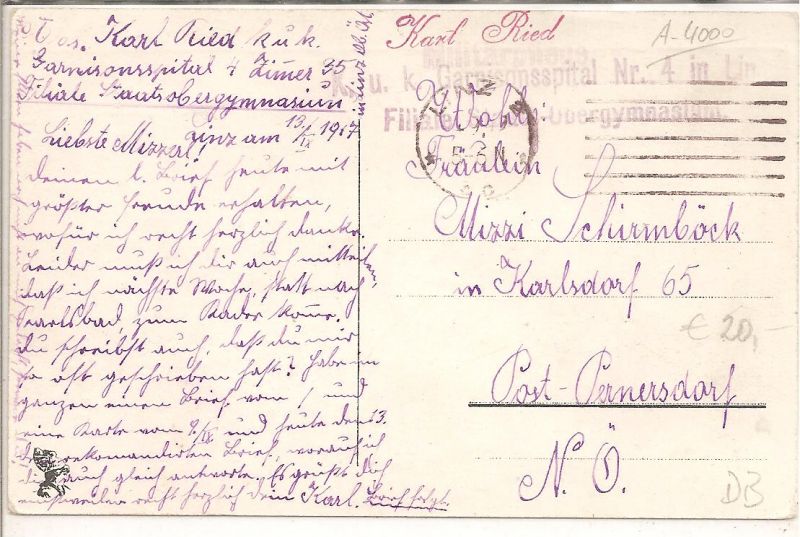 Abs. Karl Ried k. u. k.
Garnisonsspital 4 Zimmer 35
Filiale Staatsobergymnasium
in Linz a/D
Linz am 13/IX 1917
Liebste Mizzerl!
Deinen l. Brief heute mit
größter Freude erhalten,
wofür ich recht herzlich danke.
Leider muß ich dir auch mitteilen,
daß ich nächste Woche, statt nach
Karlsbad, zum Kader komme.
Du schreibst auch, daß du mir
so oft geschrieben hast? Habe im
ganzen einen Brief vom 1/ und
eine Karte vom 9./IX und heute den 13.
d. rekomandirten Brief, worauf ich
dir auch gleich antworte. Es grüßt Dich
einstweilen recht herzlich dein Karl. Brief folgt.
Karl Ried
K. u. k. Garnisonsspital Nr. 4 in Lin
Filiale Staatsobergymnasium
LINZ
A-4000
Wohlg.
Fräulein
Mizzi Schirmböck
in Karlsdorf 65
€ 20,-
Post-Pernersdorf
N. Ö.
DB